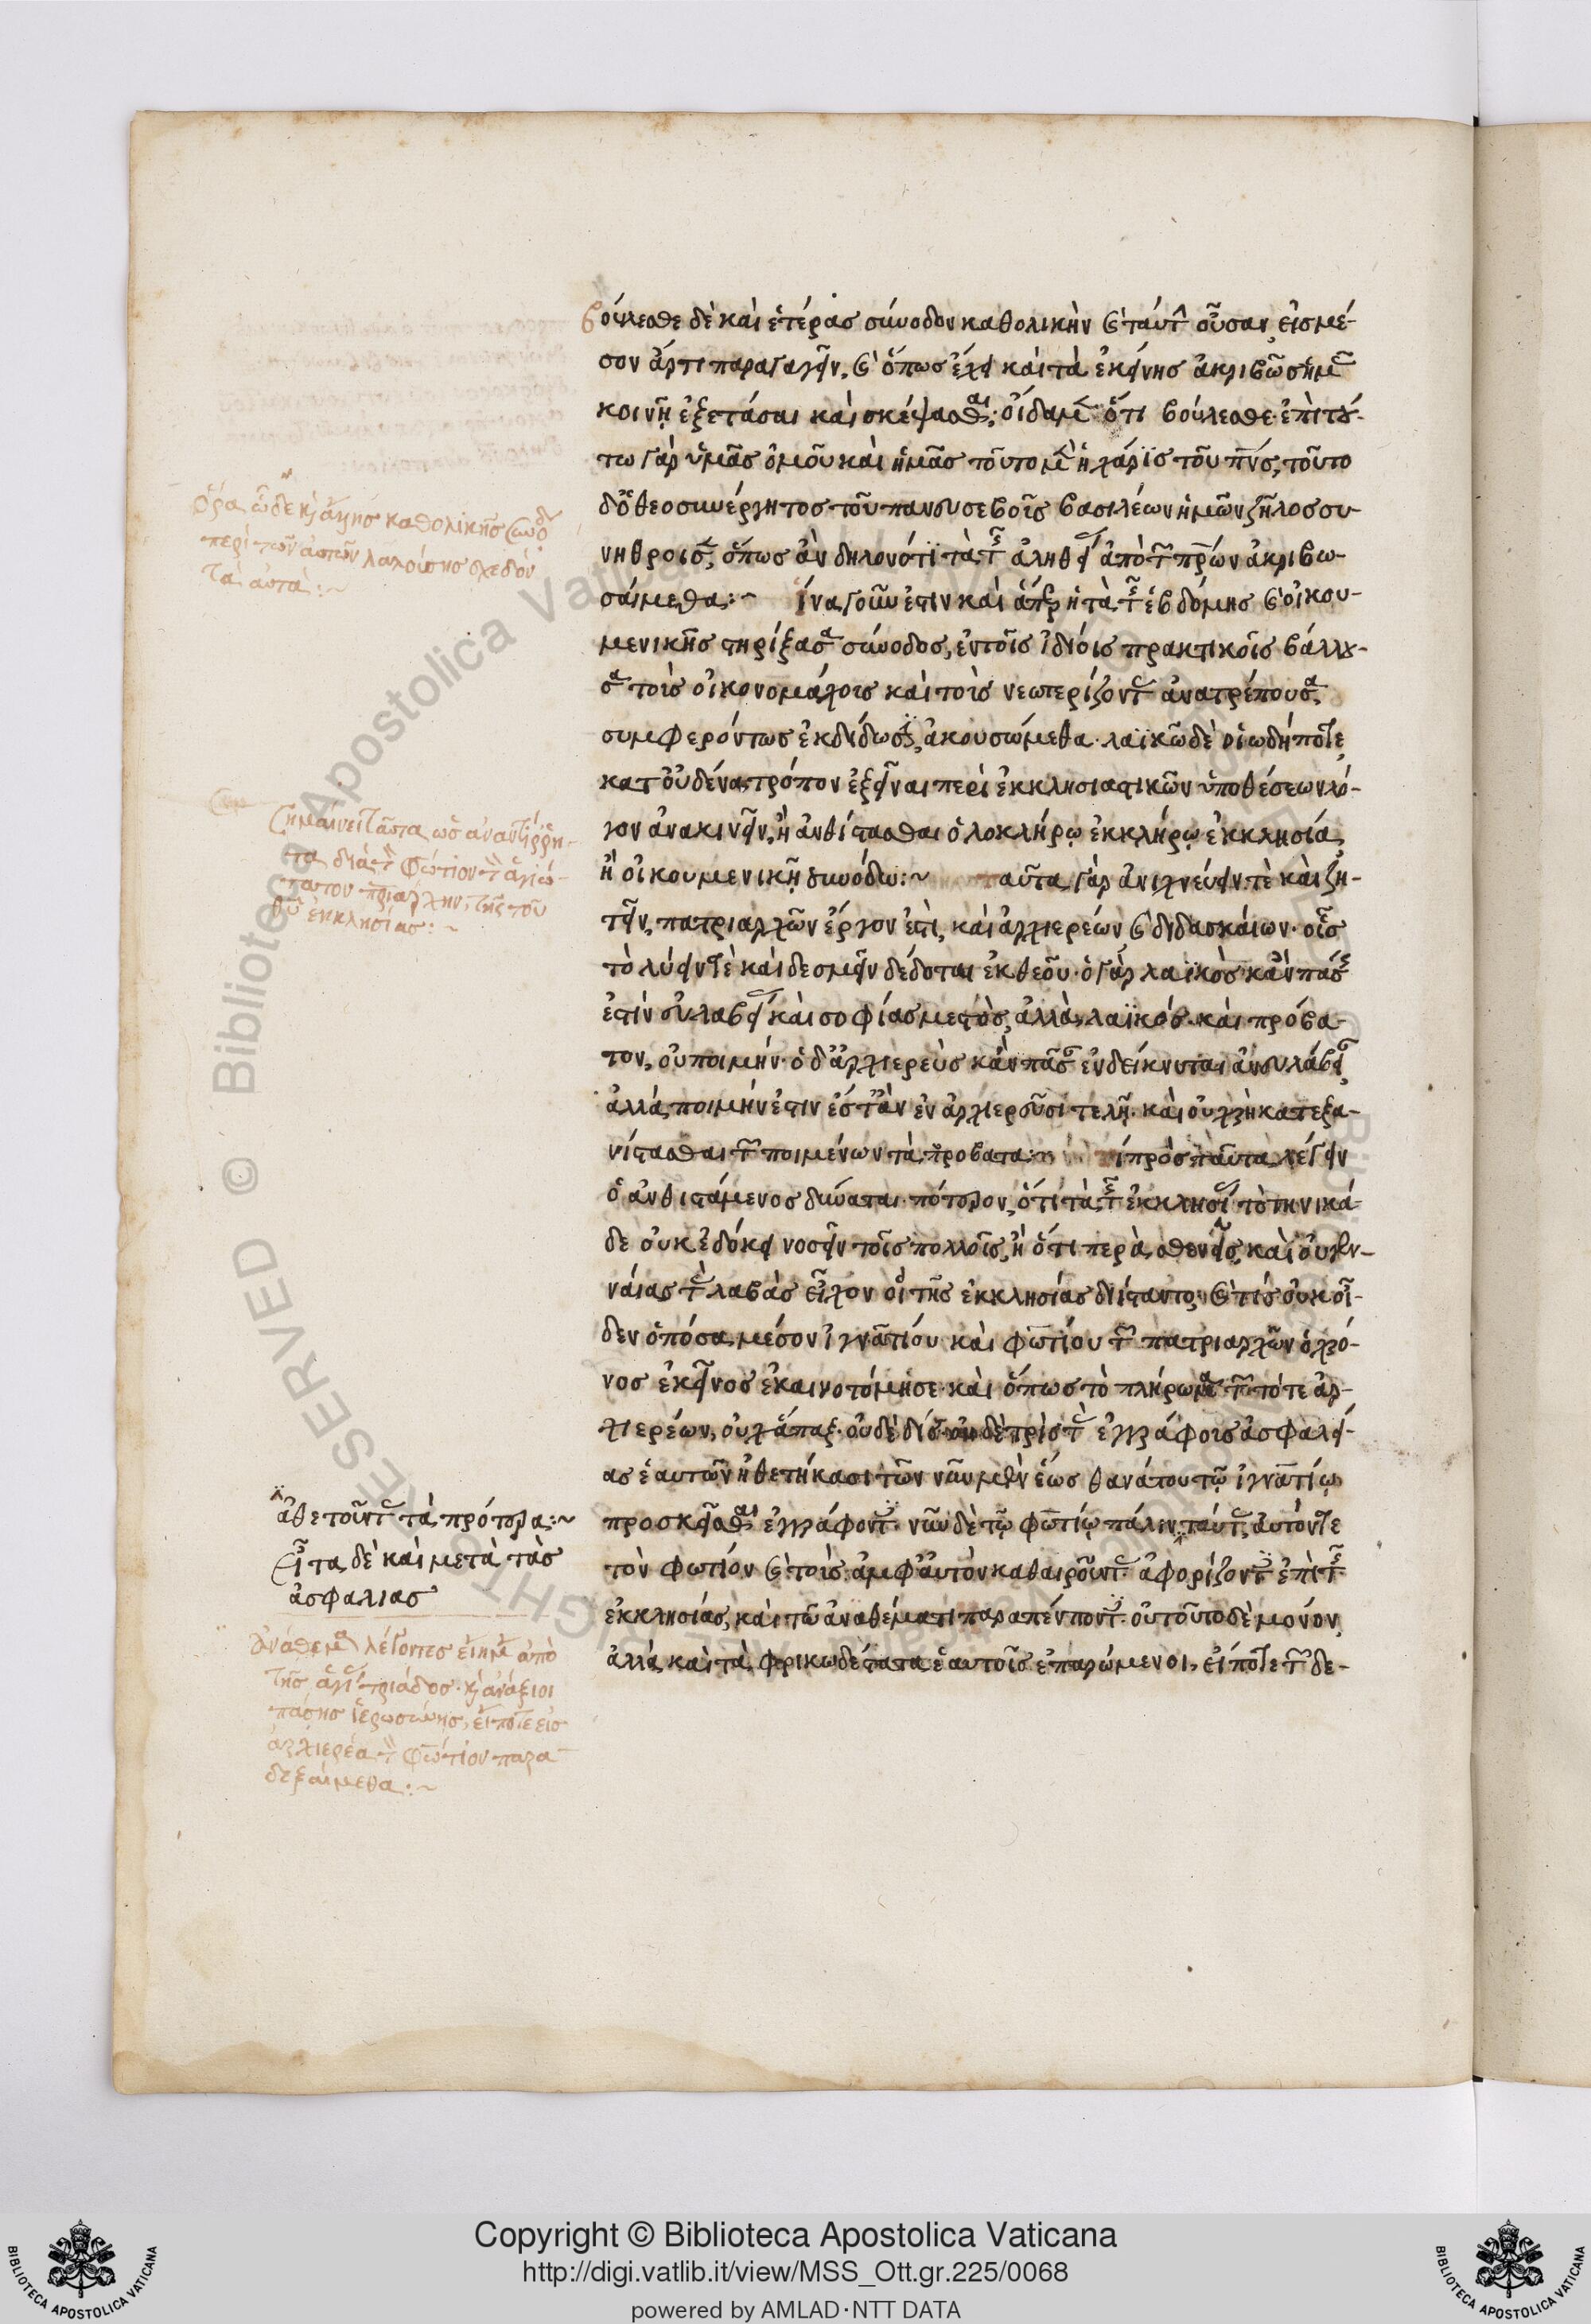 βούλεσθε δὲ καὶ ἑτέρας σύνοδον καθολικὴν καὶ ταύτ οὖσαν εἰς μέ-
σον ἄρτι παραγαγεῖν, καὶ ὅπως ἔχει καὶ τὰ ἐκείνης ἀκριβῶς ἡμ
κοινῇ ἐξετάσαι καὶ σκέψασθαι; οἶδαμ ὅτι βούλεσθε· ἐπὶ τού-
τω γὰρ ὑμᾶς ὁμοῦ καὶ ἡμᾶς τοῦτο μ ἡ χάρις τοῦ πνς, τοῦτο
δ' ὁ θεοσυνέργητος τοῦ πανευσεβοῦς βασιλέων ἡμῶν ζῆλος συ-
νήθροισ, ὅπως ἂν δηλονότι τὰ τῆς ἀληθεί ἀπὸ τῶν πρων ἀκριβω-
σαίμεθα:~ ἵνα γοῦν ἐστιν καὶ ἅπερ ἡ τὰ τῆς ἑβδόμης καὶ οἰκου-
μενικῆς στηρίξασα σύνοδος, ἐν τοῖς ἰδίοις πρακτικοῖς βάλλου-
σα τοὺς εἰκονομάχους καὶ τοὺς νεωτερίζοντ ἀνατρέπουσα,
συμφερόντως ἐκδίδωσι, ἀκουσώμεθα· λαϊκῶ δὲ οἱωδήποτε
κατ' οὐδένα τρόπον ἐξεῖναι περὶ ἐκκλησιαστικῶν ὑποθέσεων λό-
γον ἀνακινεῖν, ἢ ἀνθίστασθαι ὁλοκλήρῳ ἐκκλήρῳ ἐκκλησία,
ἢ οἰκουμενικῇ συνόδω:~ ταῦτα γὰρ ἀνιχνεύειν τὲ καὶ ζη-
τεῖν, πατριαρχῶν ἔργον ἐστὶ, καὶ ἀρχιερέων καὶ διδασκάλων· οἷς
τὸ λύειν τὲ καὶ δεσμεῖν δέδοται ἐκ θεοῦ· ὁ γὰρ λαϊκὸς κἂν πάσης
ἐστὶν εὐλαβεί καὶ σοφίας μεστὸς, ἀλλὰ λαϊκός· καὶ πρόβα-
τον, οὐ ποιμήν· ὁ δ' ἀρχιερεὺς κἂν πᾶσ ἐνδείκνυται ἀνευλάβει,
ἀλλὰ ποιμήν ἐστιν ἔστ' ἂν ἐν ἀρχιερεῦσι τελῇ· καὶ οὐ χρὴ κατεξα-
νίστασθαι τῶν ποιμένων τὰ πρόβατα:~ τί πρὸς ταῦτα λέγειν
ὁ ἀνθιστάμενος δύναται· πότερον, ὅτι τὰ τῆς ἐκκλησί τὸ τηνικά-
δε οὐκ ἐδόκει νοσεῖν τοῖς πολλοῖς, ἢ ὅτι περὰ σθενεῖς, καὶ οὐ γεν-
ναίας τὰς λαβὰς εἶχον οἱ τῆς ἐκκλησίας διίσταντο; καὶ τίς οὐκ οἶ-
δεν ὁπόσα μέσον ἰγνατίου καὶ φωτίου τῶν πατριαρχῶν ὁ χρό-
νος ἐκεῖνος ἐκαινοτόμησε· καὶ ὅπως τὸ πλήρωμα τῶν τότε ἀρ-
χιερέων, οὐχ ἅπαξ· οὐδὲ δίς· οὐδὲ τρὶς τὰς ἐγγράφους ἀσφαλεί-
ας ἑαυτῶν ἠθετήκασι τῶν νῦν μὲν ἕως θανάτου τῷ ἰγνατίῳ
προσκεῖσθαι ἐγγράφοντ· νῦν δὲ τῷ φωτίῳ πάλιν ταύτ, αὐτόν τε
τὸν φώτιον καὶ τοὺς ἀμφ' αὐτὸν καθαιροῦντ ἀφορίζοντ ἐπὶ τῆς
ἐκκλησίας, καὶ τῶ ἀναθέματι παραπέμποντ· οὐ τοῦτο δὲ μόνον,
ἀλλὰ καὶ τὰ φρικωδέστατα ἑαυτοῖς ἐπαρώμενοι, εἴ ποτε τῶν δε-
ὅρα ὧδε κἀκείνης καθολικῆς συνόδ
περὶ τῶν αὐτῶν λαλούσης σχεδὸν
τὰ αὐτὰ:~
σημαίνει ταῦτα ὡς ἀναντίρρη-
τα διὰ τὸν φώτιον τὸν ἁγιώ-
τατον πριάρχην, τῆς τοῦ
θυ ἐκκλησίας:~
ἀθετοῦντ τὰ πρότερα:~
εἶτα δὲ καὶ μετὰ τὰς
ἀσφαλιας
ἀνάθεμα λέγοντες εἴημ ἀπὸ
τῆς ἁγί τριάδος· κἀνάξιοι
πάσης ἱερωσύνης, εἴποτε εἰς
ἀρχιερέα τὸν φώτιον παρα-
δεξαίμεθα:~
Copyright © Biblioteca Apostolica Vaticana
http://digi.vatlib.it/view/MSS_Ott.gr.225/0068
powered by AMLAD·NTT DATA